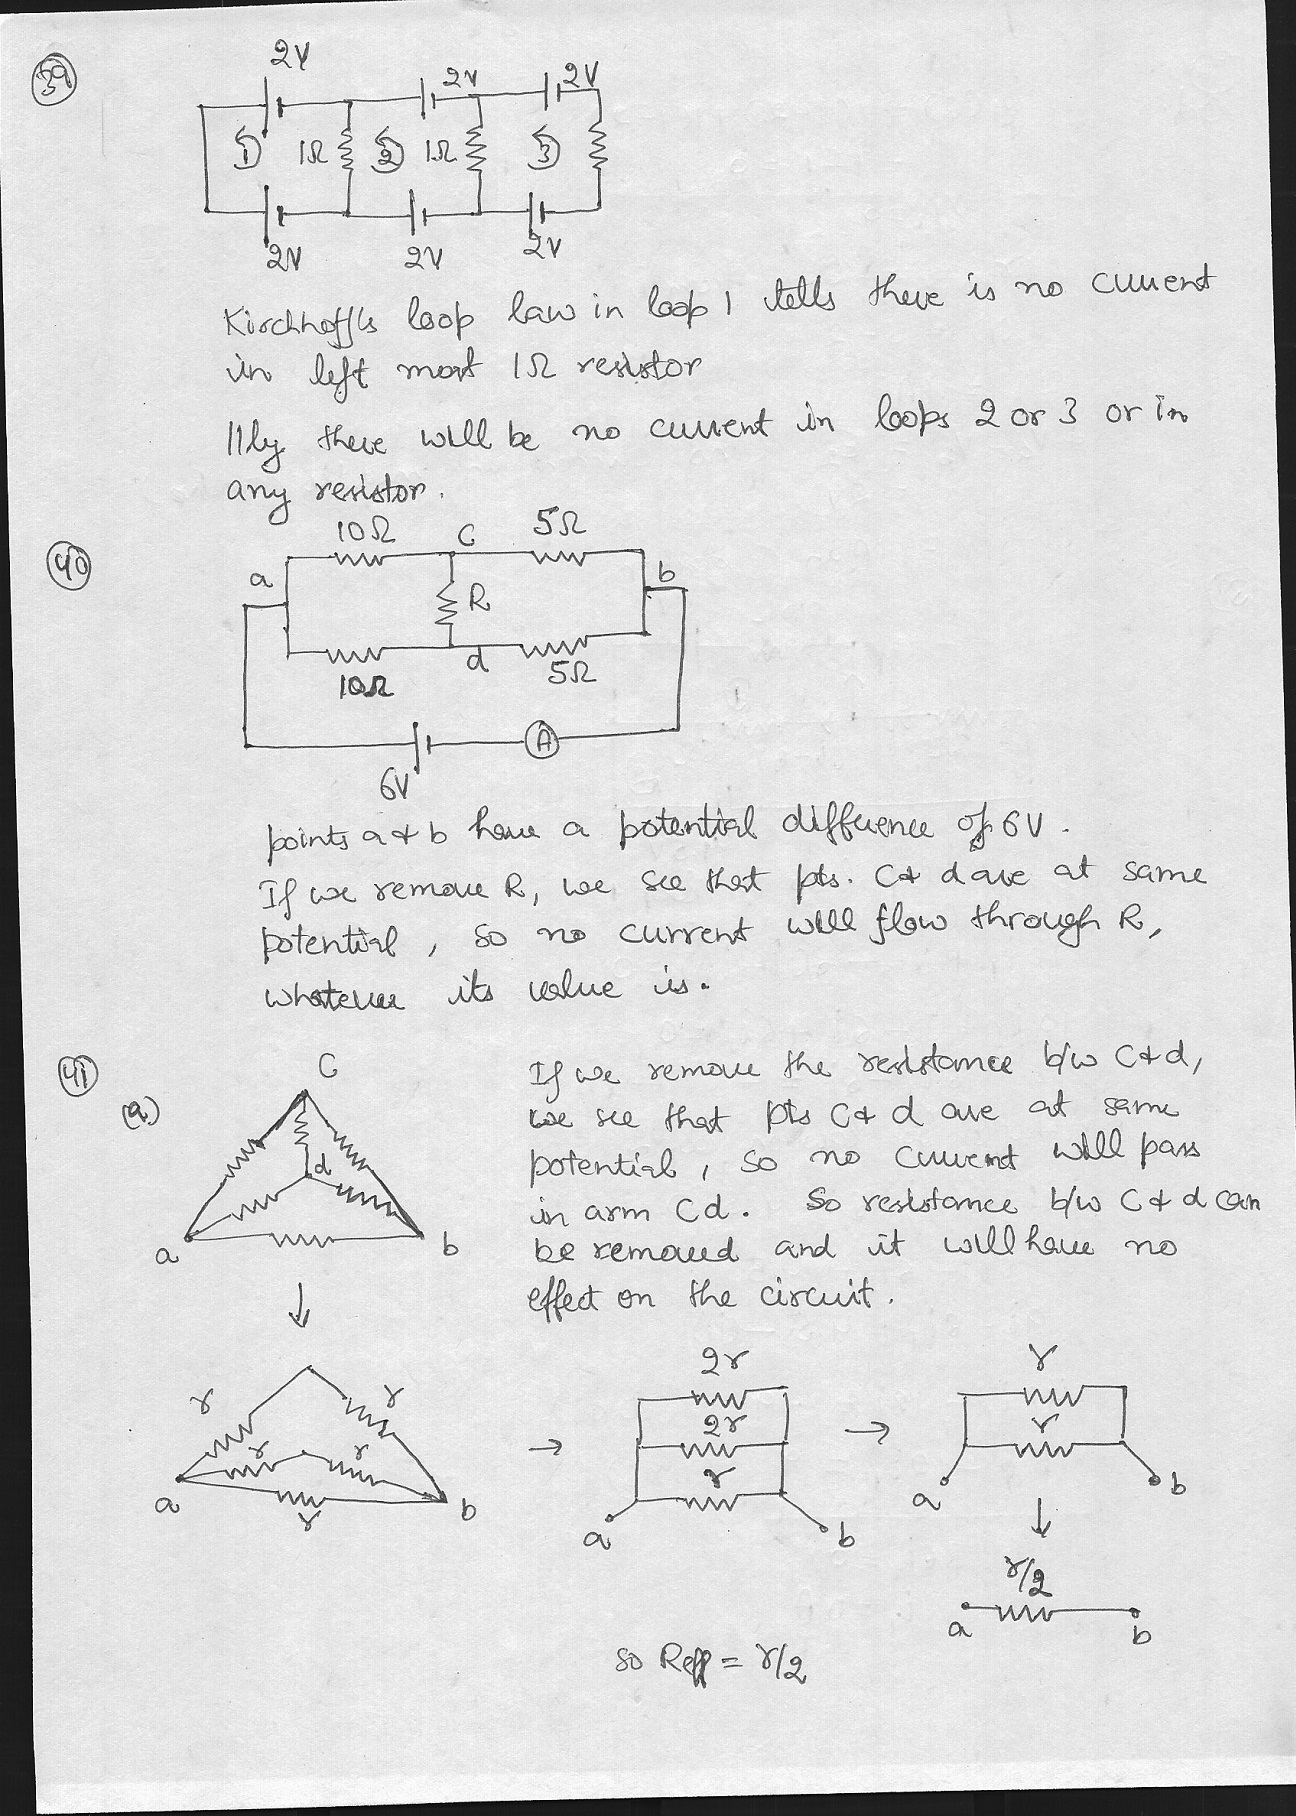 39
2V 2V 2V
1 1Ω 2 1Ω 3
2V 2V 2V
Kirchhoff's loop law in loop 1 tells there is no current
in left most 1Ω resistor
llly there will be no current in loops 2 or 3 or in
any resistor.
40
10Ω C 5Ω
a b
R
d
10Ω 5Ω
A
6V
points a & b have a potential difference of 6V.
If we remove R, we see that pts. C & d are at same
potential, so no current will flow through R,
whatever its value is.
41
(a)
C
d
a b
If we remove the resistance b/w C & d,
we see that pts C & d are at same
potential, so no current will pass
in arm Cd. So resistance b/w C & d can
be removed and it will have no
effect on the circuit.
↓
r r
r r
a r b
→
2r
2r
r
a b
→
r
r
a b
↓
r/2
a b
so Reff = r/2